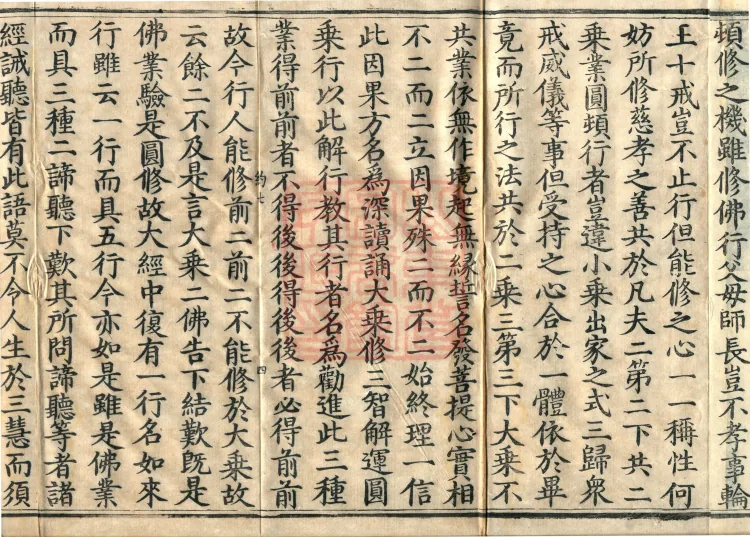 頓修之機雖修佛行父毋師長豈不孝事輪
王十戒豈不止行但能修之心一一稱性何
妨所修慈孝之善共於凡夫二第二下共二
乘業圓頓行者豈違小乘出家之式三歸衆
戒威儀等事但受持之心合於一體依於畢
竟而所行之法共於二乘三第三下大乘不
共業依無作境起無縁誓名發菩提心實相
不二而二立因果殊二而不二始終理一信
此因果方名爲深讀誦大乘修三智解運圓
乘行以此解行教其行者名爲勸進此三種
業得前前者不得後後得後後者必得前前
約七
四
故今行人能修前二前二不能修於大乘故
云餘二不及是言大乘二佛告下結歎旣是
佛業驗是圓修故大經中復有一行名如來
行雖云一行而具五行今亦如是雖是佛業
而具三種二諦聽下歎其所問諦聽等者諸
經誡聽皆有此語莫不令人生於三慧而須